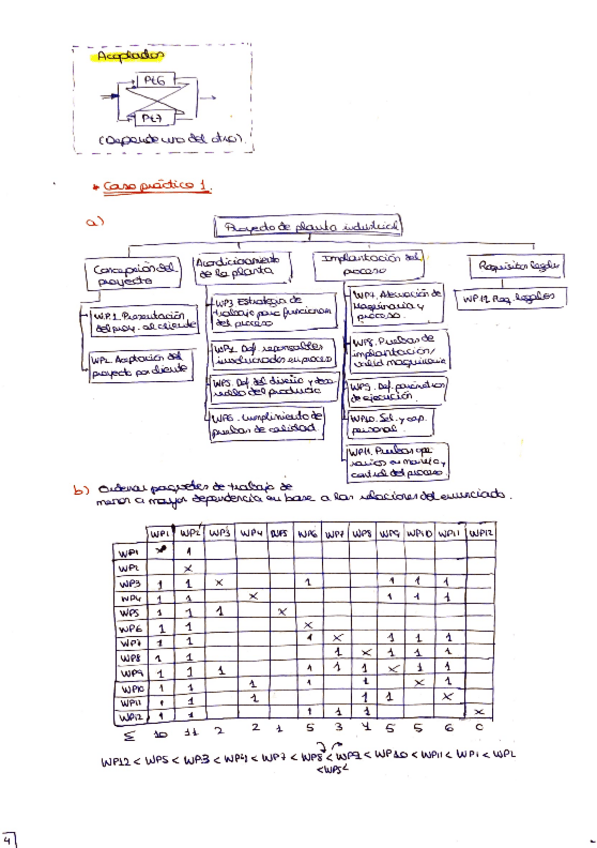 Acoplados
Pt6
Pt7
(Depende uno del otro).
* Caso práctico 1.
a)
Proyecto de planta industrial
Concepción del
proyecto
WP.1. Presentación
del proy. al cliente
WP2. Aceptación del
proyecto por cliente
Acondicionamiento
de la planta
WP3. Estrategia de
trabajo para funcionam
del proceso
WP4. Def. responsables
involucrados en proceso
WP5. Def. del diseño y desa-
rrollo del producto
WP6. Cumplimiento de
pruebas de calidad.
Implantación del
proceso
WP7. Adecuación de
maquinaria y
proceso.
WP8. Pruebas de
implantación/
valid maquinaria
WP9. Def. parámetros
de ejecución.
WP10. Sel. y cap.
personal.
WP11. Pruebas ope
rativas en marcha y
control del proceso.
Requisitos legales
WP12. Req. legales
b) Ordenar paquetes de trabajo de
menor a mayor dependencia en base a las relaciones del enunciado.
WP1 WP2 WP3 WP4 WP5 WP6 WP7 WP8 WP9 WP10 WP11 WP12
WP1 x 1
WP2 x
WP3 1 1 x 1 1 1 1
WP4 1 1 x 1 1 1
WP5 1 1 1 x
WP6 1 1 x
WP7 1 1 1 x 1 1 1
WP8 1 1 1 x 1 1 1
WP9 1 1 1 1 1 1 x 1 1
WP10 1 1 1 1 1 x 1
WP11 1 1 1 1 1 x
WP12 1 1 1 1 1 x
Σ 10 11 2 2 1 5 3 4 5 5 6 0
WP12 < WP5 < WP3 < WP4 < WP7 < WP8 < WP9 < WP10 < WP11 < WP1 < WP2
4